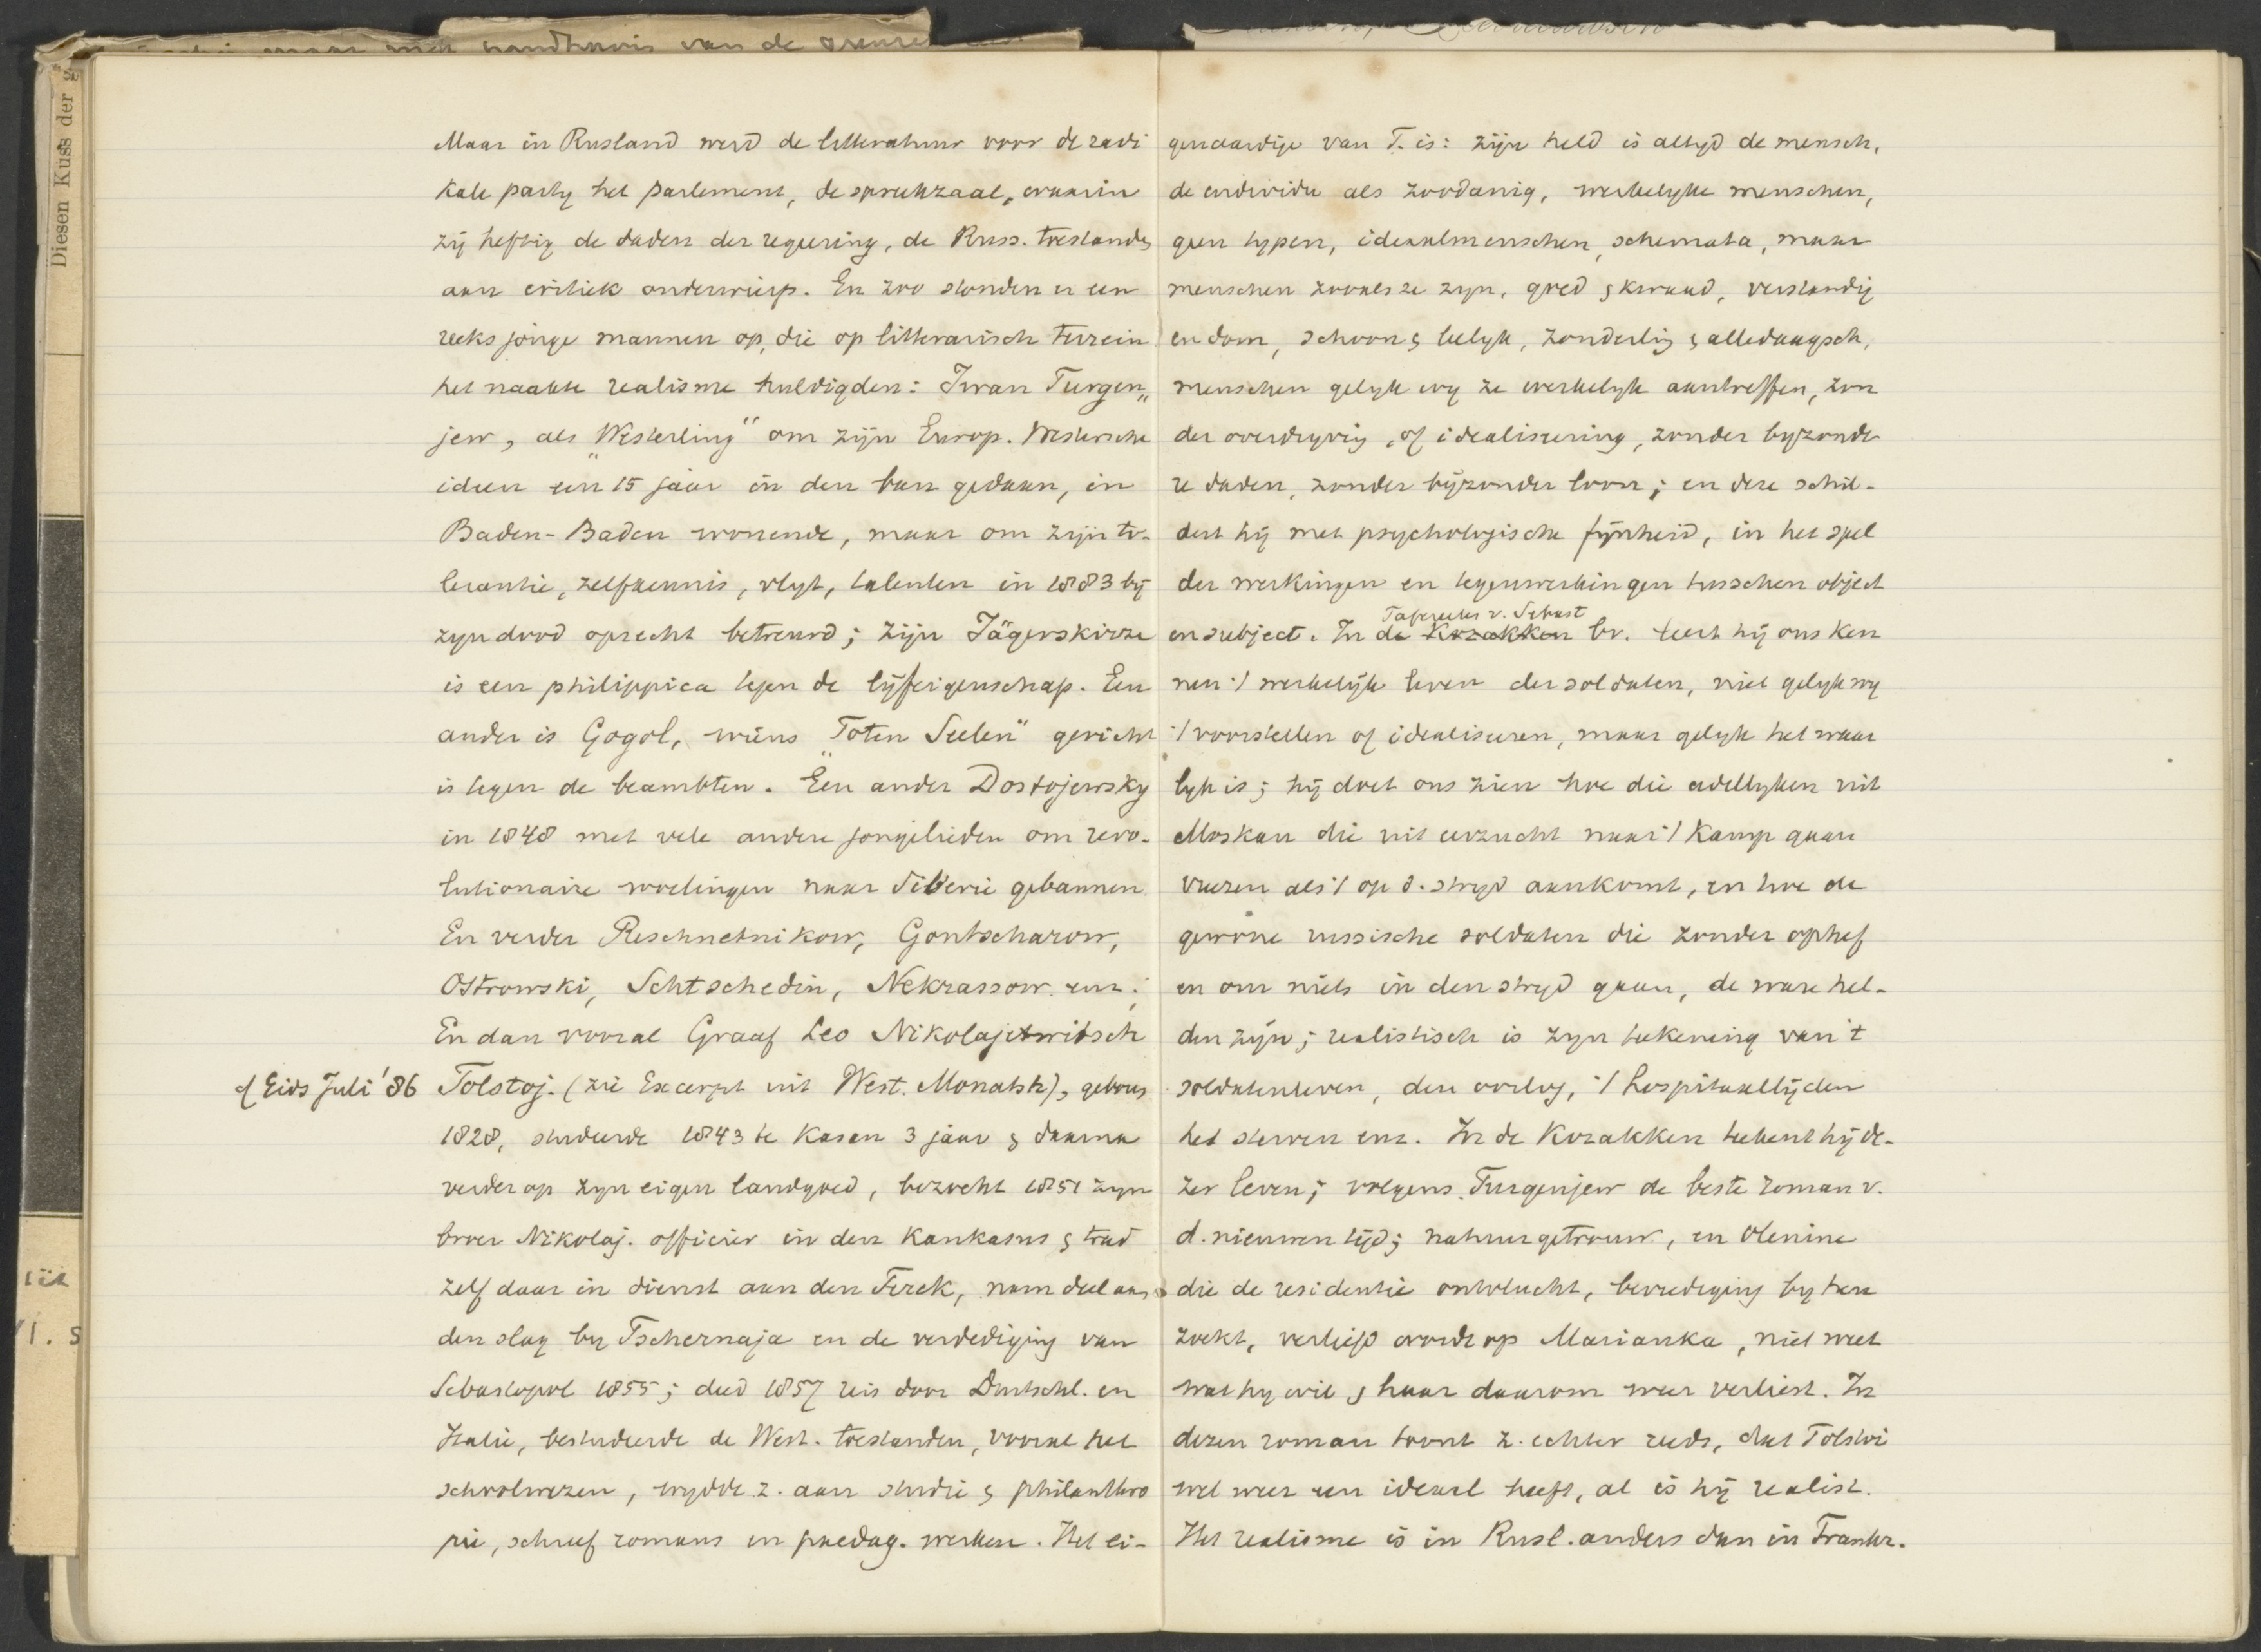 maar met handhavin van de grenze
Diesen Kuss der
Maar in Rusland werd de litteratuur voor de radi
kale party het parlement, de spreekzaal, waarin
zij heftig de daden der regeering, de Russ. toestanden
aan critiek onderwierp. En zoo stonden er een
reeks jonge mannen op, die op litterarisch terrein
het naakte realisme huldigden: Iwan Turgen„
jew, als „Westerling" om zijn Europ. Westersche
ideen een 15 jaar in den ban gedaan, in
Baden-Baden wonende, maar om zijn to-
lerantie, zelfkennis, vlyt, talenten in 1883 bij
zyn dood oprecht betreurd; zijn Jägerskizze
is een philippica tegen de lijfeigenschap. Een
ander is Gogol, wiens „Toten Seelen" gericht
is tegen de beambten. Een ander Dostojewsky
in 1848 met vele andere jongelieden om revo-
lutionaire woelingen naar Siberië gebannen
En verder Reschnetnikow, Gontscharow,
Ostrowski, Schtschedin, Nekrassow enz.;
En dan vooral Graaf Leo Nikolajewitsch
cf Eios Juli '86 Tolstoj. (zie Excerpt uit West. Monatsh), geboren
1828, studeerde 1843 te Kasan 3 jaar & daarna
verder op zyn eigen landgoed, bezocht 1851 zyn
broer Nikolaj. officier in den Kaukasus & trad
zelf daar in dienst aan den Terek, nam deel aan
den slag by Tschernaja en de verdediging van
Sebastopol 1855; deed 1857 reis door Duitschl. en
Italie, bestudeerde de West. toestanden, vooral het
schoolwezen, wydde z. aan studie & philanthro
pie, schreef romans en paedag. werken. Het ei-
genaardige van T. is: zijn held is altyd de mensch,
de individu als zoodanig, werkelyke menschen,
geen typen, ideaalmenschen, schemata, maar
menschen zooals ze zyn, goed & kwaad, verstandig
en dom, schoon & leelyk, zonderling & alledaagsch,
menschen gelyk wy ze werkelyk aantreffen, zon
der overdryving, of idealiseering, zonder byzonde
re daden, zonder bijzonder loon; en deze schil-
dert hij met psychologische fijnheid, in het spel
der werkingen en tegenwerkingen tusschen object
Tafereelen v. Sebast
en subject. In de Kozakken bv. leert hij ons ken
nen 't werkelijk leven der soldaten, niet gelyk wy
't voorstellen of idealiseeren, maar gelyk het waar
lyk is; hij doet ons zien hoe die adellyken uit
Moskau die uit eerzucht naar 't kamp gaan
vreezen als 't op d. stryd aankomt, en hoe de
gewone russische soldaten die zonder ophef
en om niets in den stryd gaan, de ware hel-
den zijn; realistisch is zyn teekening van 't
soldatenleven, den oorlog, 't hospitaallijden
het sterven enz. In de Kozakken teekent hij de-
zer leven; volgens Turgenjew de beste roman v.
d. nieuwen tijd; natuurgetrouw, en Olenine
die de residentie ontvlucht, bevrediging by hen
zoekt, verliefd wordt op Marianka, niet weet
wat hy wil & haar daarom weer verliest. In
dezen roman toont z. echter reeds, dat Tolstoi
wel weer een ideaal heeft, al is hij realist.
Het realisme is in Rusl. anders dan in Frankr.